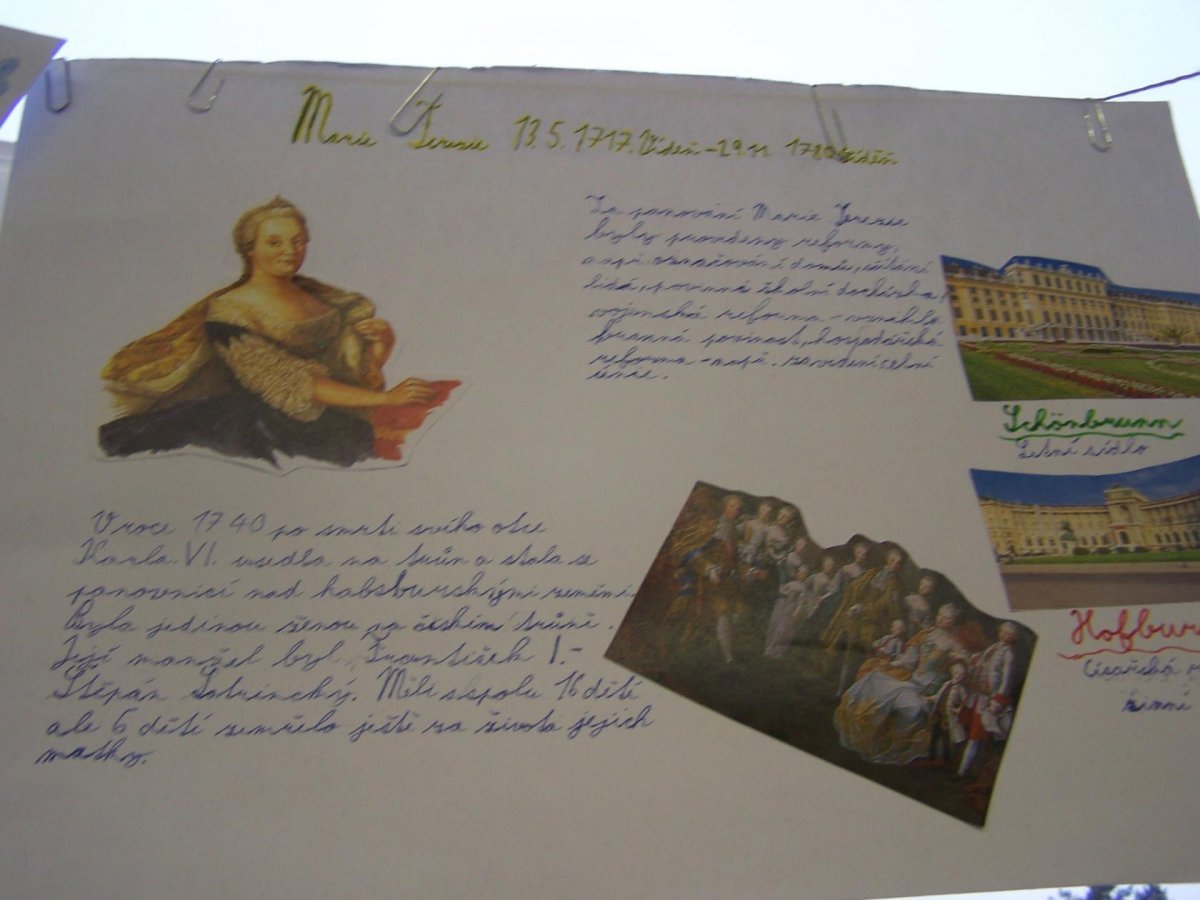 Marie Terezie 13.5.1717.Vídeň-29.11 1780 Vídeň
Za panování Marie Terezie
byly provedeny reformy,
a např. označování domů, sčítání
lidu, povinná školní docházka,
vojenská reforma - vznikla
branná povinost, hospodářská
reforma - např. zavedení celní
unie.
Schönbrunn
Letní sídlo
Hofbur
Císařská
zimní
V roce 1740 po smrti svého otce
Karla VI. usedla na trůn a stala se
panovnicí nad habsburskými zeměmi.
Byla jedinou ženou na českém trůně.
Její manžel byl František I.-
Štěpán Lotrinský. Měli spolu 16 dětí
ale 6 dětí zemřelo ještě za života jejich
matky.